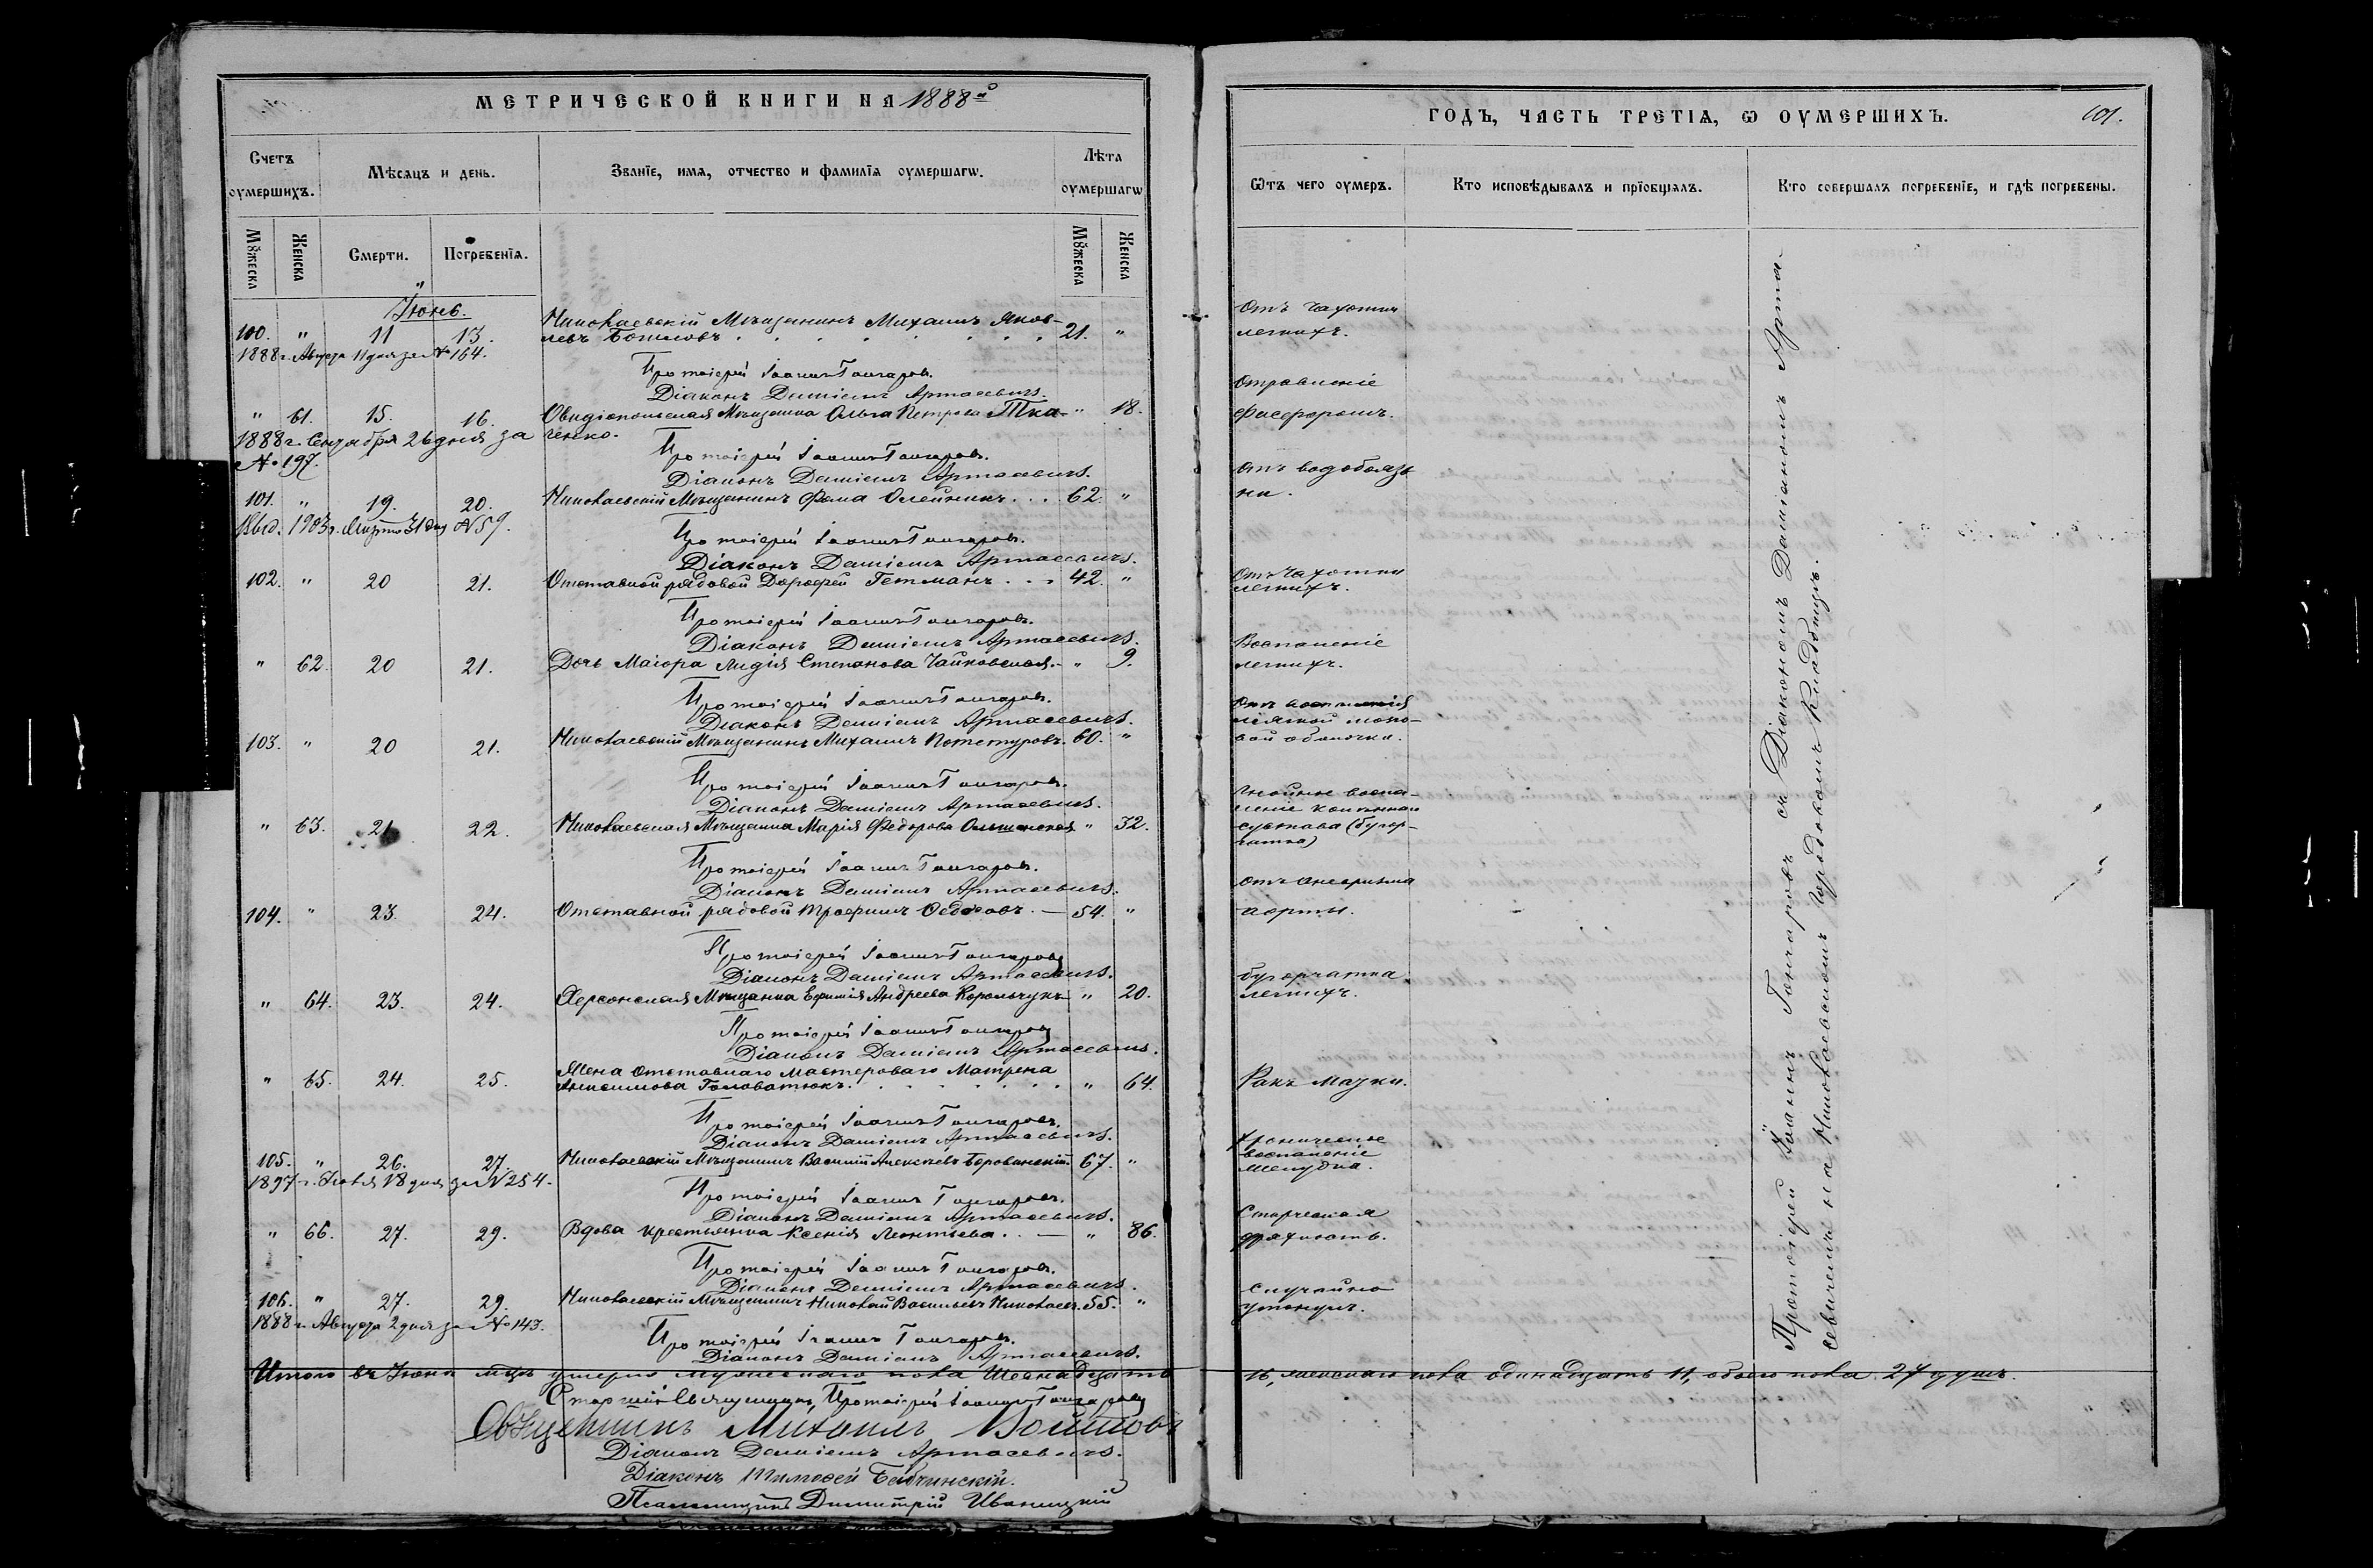 МЕТРИЧЕСКОЙ КНИГИ НА 1888й
Счетъ оумершихъ.
Мѣсяцъ и день.
Званїе, имя, отчество и фамилїя оумершагѡ.
Лѣта оумершагѡ
Мꙋжеска
Женска
Смерти.
Погребенїя.
Мꙋжеска
Женска
Іюнь.
100. " 11 13. Николаевскій Мѣщанинъ Михаилъ Яков-
левъ 21. "
1888 г. Августа 11 дня за № 164.
Протоіерей Іоаннъ Гончаровъ.
Діаконъ Даміанъ Артасевичъ.
" 61. 15. 16. Овидіопольская Мѣщанка Ольга Петрова Тка- " 18.
ченко.
1888 г. Сентября 26 дня за
№ 197.
Протоіерей Іоаннъ Гончаровъ.
Діаконъ Даміанъ Артасевичъ.
101. " 19. 20. Николаевскій Мѣщанинъ Фома Олейникъ 62. "
Выд. 1903 г. Марта 31 дня № 59.
Протоіерей Іоаннъ Гончаровъ.
Діаконъ Даміанъ Артасевичъ.
102. " 20 21. Отставной рядовой Дорофей Гетманъ 42. "
Протоіерей Іоаннъ Гончаровъ.
Діаконъ Даміанъ Артасевичъ.
" 62. 20 21. Дочь Маіора Лидія Степанова Чайковская. " 9.
Протоіерей Іоаннъ Гончаровъ.
Діаконъ Даміанъ Артасевичъ.
103. " 20 21. Николаевскій Мѣщанинъ Михаилъ 60. "
Протоіерей Іоаннъ Гончаровъ.
Діаконъ Даміанъ Артасевичъ.
" 63. 21 22. Николаевская Мѣщанка Марія Федорова Ольшанская " 32.
Протоіерей Іоаннъ Гончаровъ.
Діаконъ Даміанъ Артасевичъ.
104. " 23. 24. Отставной рядовой Трофимъ 54. "
Протоіерей Іоаннъ Гончаровъ
Діаконъ Даміанъ Артасевичъ.
" 64. 23. 24. Херсонская Мѣщанка Ефимія Андреева Корольчукъ " 20.
Протоіерей Іоаннъ Гончаровъ
Діаконъ Даміанъ Артасевичъ.
" 65. 24. 25. Жена отставнаго мастероваго Матрена
Анисимова Головатюкъ. " 64.
Протоіерей Іоаннъ Гончаровъ.
Діаконъ Даміанъ Артасевичъ.
105. " 26. 27. Николаевскій Мѣщанинъ Василій Алексѣевъ Боровинскій 67. "
1897 г. 18 дня за № 254.
Протоіерей Іоаннъ Гончаровъ.
Діаконъ Даміанъ Артасевичъ.
" 66. 27. 29. Вдова крестьянка Ксенія Леонтьева. " 86.
Протоіерей Іоаннъ Гончаровъ.
Діаконъ Даміанъ Артасевичъ.
106. " 27. 29. Николаевскій Мѣщанинъ Николай Васильевъ Николаевъ. 55. "
1888 г. Августа 2 дня за № 143.
Протоіерей Іоаннъ Гончаровъ.
Діаконъ Даміанъ Артасевичъ.
Итого въ Іюнѣ мцѣ умерло мужескаго пола Шестнадцать
Старшій Священникъ, Протоіерей Іоаннъ Гончаровъ
Священникъ Михаилъ Войтовъ
Діаконъ Даміанъ Артасевичъ.
Діаконъ Тимофей
Псаломщикъ Димитрій Иваницкій
ГОДЪ, ЧАСТЬ ТРЕТІѦ, Ѡ ОУМЕРШИХЪ.
101.
Ѿтъ чего оумеръ.
Кто исповѣдывалъ и прїобщалъ.
Кто совершалъ погребенїе, и гдѣ погребены.
Отъ чахотки
легкихъ.
Отравленіе
фосфоромъ.
отъ водобояз
ни.
Отъ Чахотки
легкихъ.
Воспаленіе
легкихъ.
Отъ воспаленія
мягкой мозго-
вой оболочки.
Гнойное воспа-
леніе колѣннаго
сустава (бугор-
чатка)
Отъ аневризма
аорты.
бугорчатка
легкихъ.
Ракъ матки.
Хроническое
воспаленіе
желудка.
Старческая
дряхлость.
Случайно
утонулъ.
Протоіерей Іоаннъ Гончаровъ съ Діакономъ Даміаномъ Арта-
севичемъ на Николаевскомъ городскомъ кладбищѣ.
16, женскаго пола одинадцать 11, обоего пола 27 душъ.